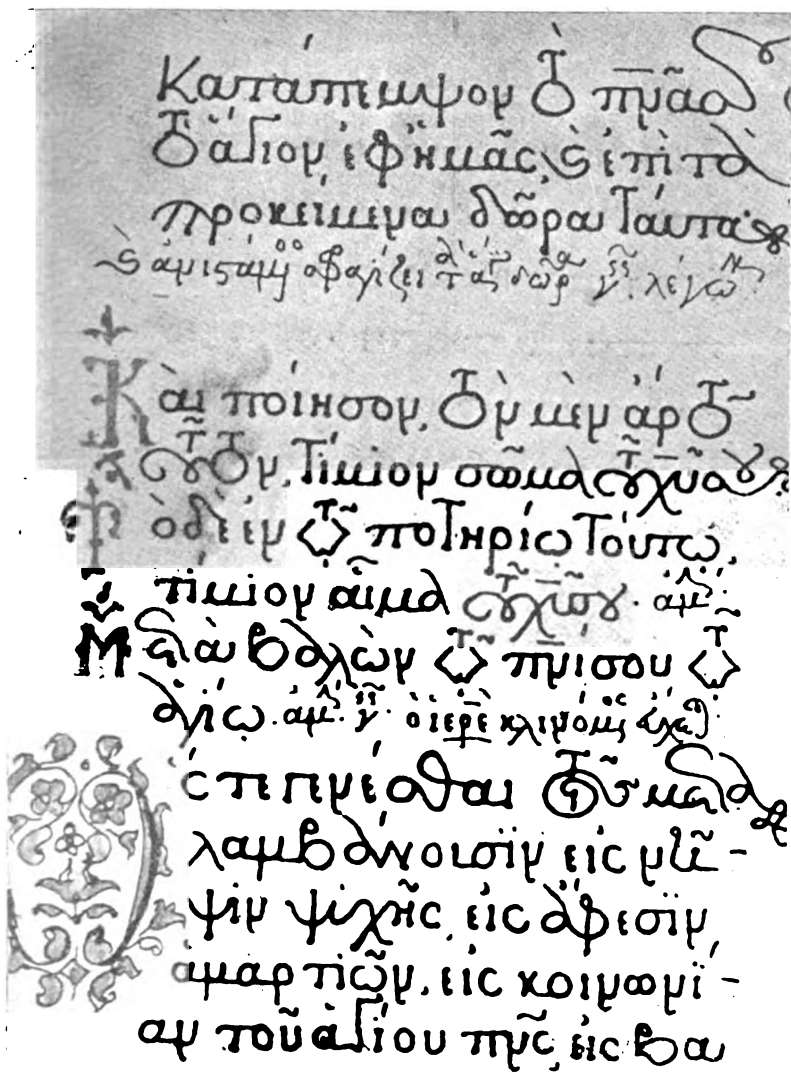 Κατάπεμψον τὸ πνᾶ σου
τὸ ἅγιον, ἐφ' ἡμᾶς, καὶ ἐπὶ τὰ
προκείμενα δῶρα ταῦτα
καὶ ἀνιστάμενος σφραγίζει τὰ ἅγια δῶρα γ λέγων
Καὶ ποίησον, τὸν μὲν ἄρτον
τοῦτον, τίμιον σῶμα τοῦ χῦ σου
Τὸ δὲ ἐν τῶ ποτηρίω τούτω,
τίμιον αἷμα τοῦ χῦ σου. ἀμ.
Μεταβαλὼν τῶ πνί σου τῶ
ἁγίω. ἀμ. γ. ὁ ἱερε κλινόμενος εὔχεται
ὥστε γενέσθαι τοῖς μετα
λαμβάνουσιν εἰς νῆ-
ψιν ψυχῆς, εἰς ἄφεσιν
ἁμαρτιῶν, εἰς κοινωνί-
αν τοῦ ἁγίου πνς, εἰς βα